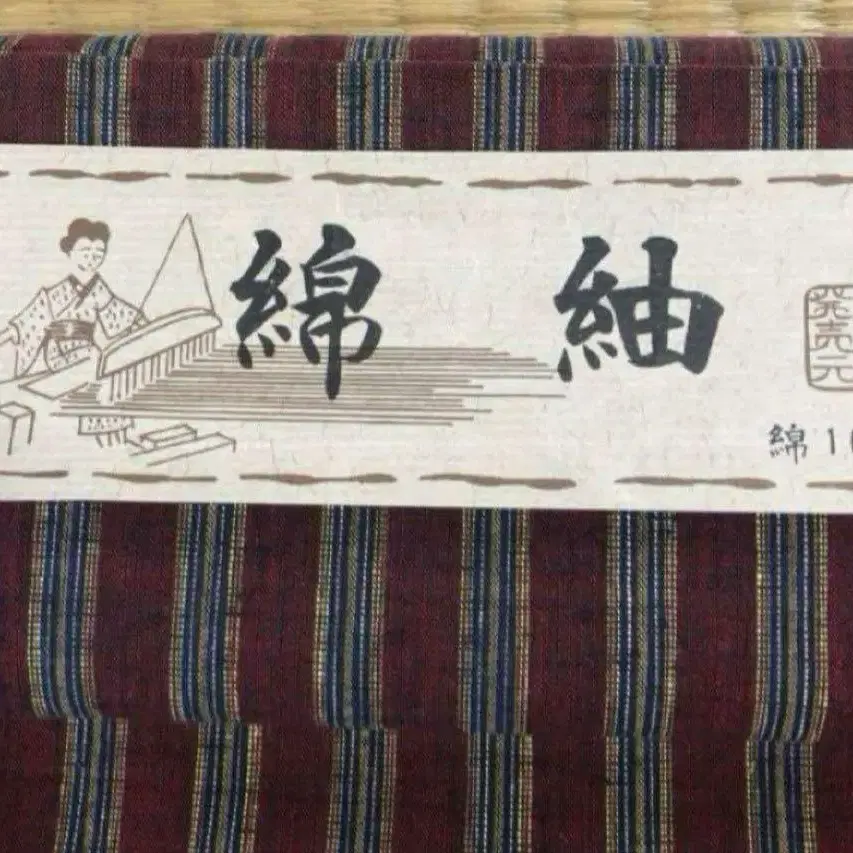 綿 紬
発売元
綿1